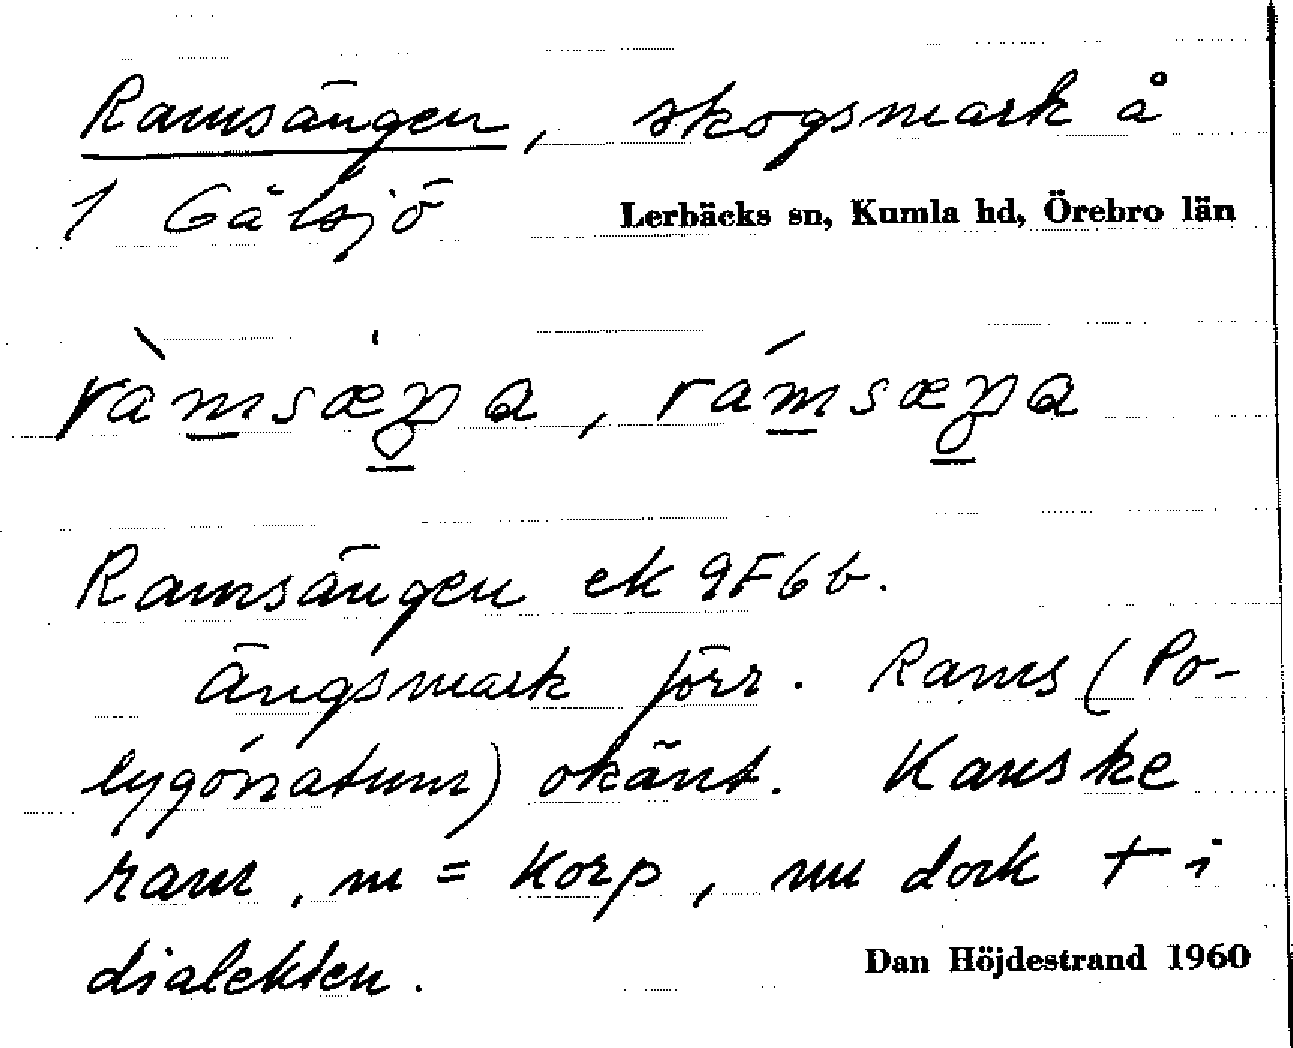 Ramsängen, skogsmark å
1 Gälsjö Lerbäcks sn, Kumla hd, Örebro län
Ramsängen ek 9F6b.
Ängsmark förr. Rams (Po-
lygónatum) okänt. Kanske
ram, m = korp, nu dock † i
dialekten.
Dan Höjdestrand 1960